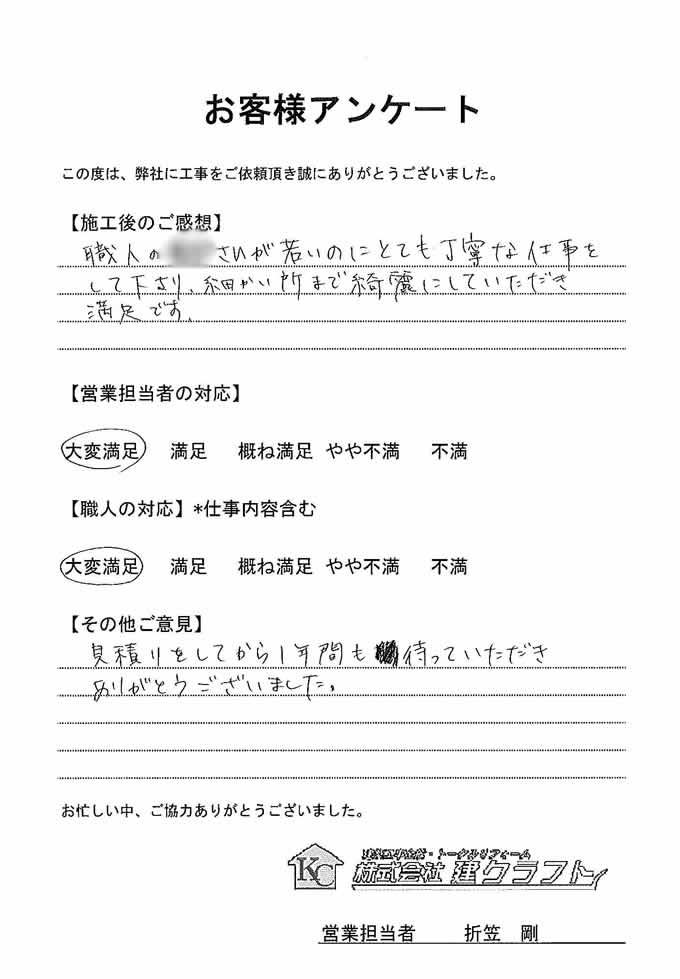 お客様アンケート
この度は、弊社に工事をご依頼頂き誠にありがとうございました。
【施工後のご感想】
職人の さんが若いのにとても丁寧な仕事を
して下さり、細かい所まで綺麗にしていただき
満足です。
【営業担当者の対応】
大変満足 満足 概ね満足 やや不満 不満
【職人の対応】*仕事内容含む
大変満足 満足 概ね満足 やや不満 不満
【その他ご意見】
見積りをしてから1年間も待っていただき
ありがとうございました。
お忙しい中、ご協力ありがとうございました。
KC
トータルリフォーム
株式会社 建クラフト
営業担当者 折笠 剛